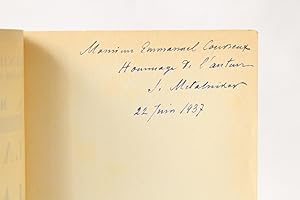 Monsieur Emmanuel Couvreux
Hommage de l'auteur
S. Metalnikov
22 Juin 1937